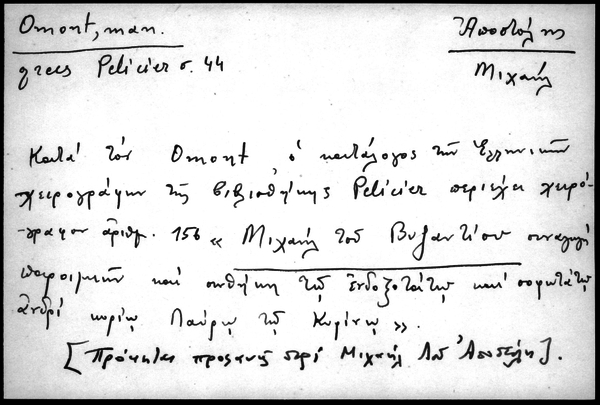 Omont, man. Ἀποστόλης
grecs Pelicier σ. 44 Μιχαήλ
Κατά τόν Omont, ὁ κατάλογος τῶν Ἑλληνικῶν
χειρογράφων τῆς βιβλιοθήκης Pelicier περιέχει χειρό-
-γραφον ἀριθμ. 156 « Μιχαήλ τοῦ Βυζαντίου συναγωγή
παροιμιῶν καί συνθήκη τῷ ἐνδοξοτάτῳ καί σοφωτάτῳ
ἀνδρί κυρίῳ Λαύρῳ τῷ Κυρίνῳ ».
[Πρόκειται προφανῶς περί Μιχαήλ τοῦ Ἀποστόλη].